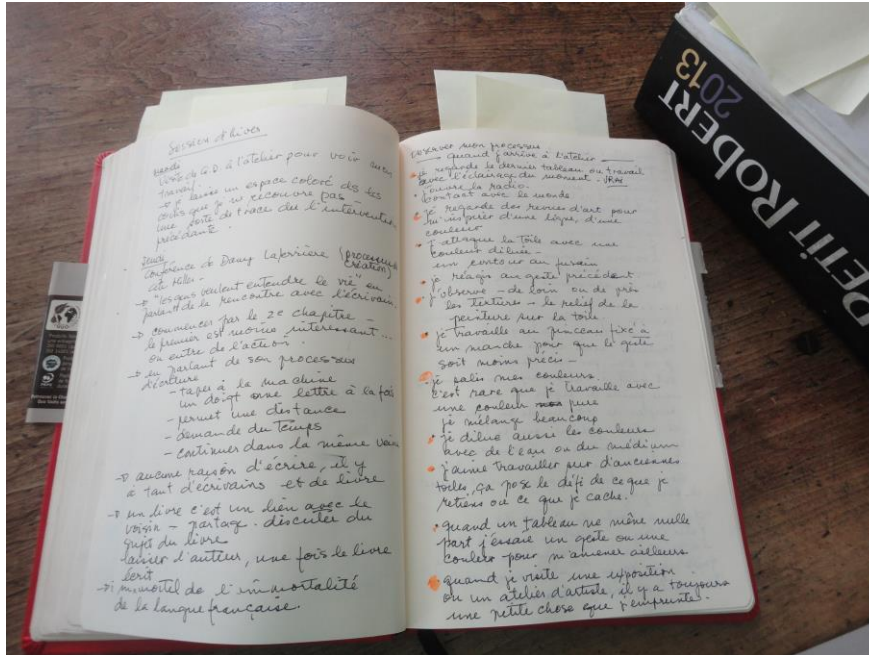 Session d'hiver
Mardi
Visite de G.D. à l'atelier pour voir
travail
je laisse un espace coloré ds les
que je ne recouvre pas –
une sorte de trace de l'intervention
précédente.
Jeudi
Conférence de Dany Laferrière (processus
création)
au
→ "les gens veulent entendre la vie" en
parlant de la rencontre avec l'écrivain.
→ commencer par le 2e chapitre –
le premier est moins intéressant...
on entre de l'action.
→ en partant de son processus
d'écriture
- taper à la machine
un doigt une lettre à la fois
- permet une distance
- demande du temps
- continuer dans la même
→ aucune raison d'écrire, il y
a tant d'écrivains et de livre
→ un livre c'est un lien avec le
voisin – partage. discuter du
sujet du livre
laisser l'auteur, une fois le livre
écrit
→ immortel de l'immortalité
de la langue française.
Observer mon processus
quand j'arrive à l'atelier –
je regarde le dernier tableau ou travail
avec l'éclairage du moment. VRAI
j'ouvre la radio.
contact avec le monde
je regarde des revues d'art pour
m'inspirer d'une ligne, d'une
couleur
J'attaque la toile avec une
couleur diluée –
un contour au fusain
je réagis au geste précédent
j'observe – de loin ou de près
les textures – le relief de la
peinture sur la toile.
je travaille au pinceau fixé à
un manche pour que le geste
soit moins précis –
je salis mes couleurs
c'est rare que je travaille avec
une couleur pure
je mélange beaucoup
je dilue aussi les couleurs
avec de l'eau ou du médium
j'aime travailler sur d'anciennes
toiles, ça pose le défi de ce que je
retiens ou ce que je cache.
quand un tableau ne mène nulle
part j'essaie un geste ou une
couleur pour m'amener ailleurs
quand je visite une exposition
ou un atelier d'artiste, il y a toujours
une petite chose que j'emprunte.
PETIT ROBERT
2013